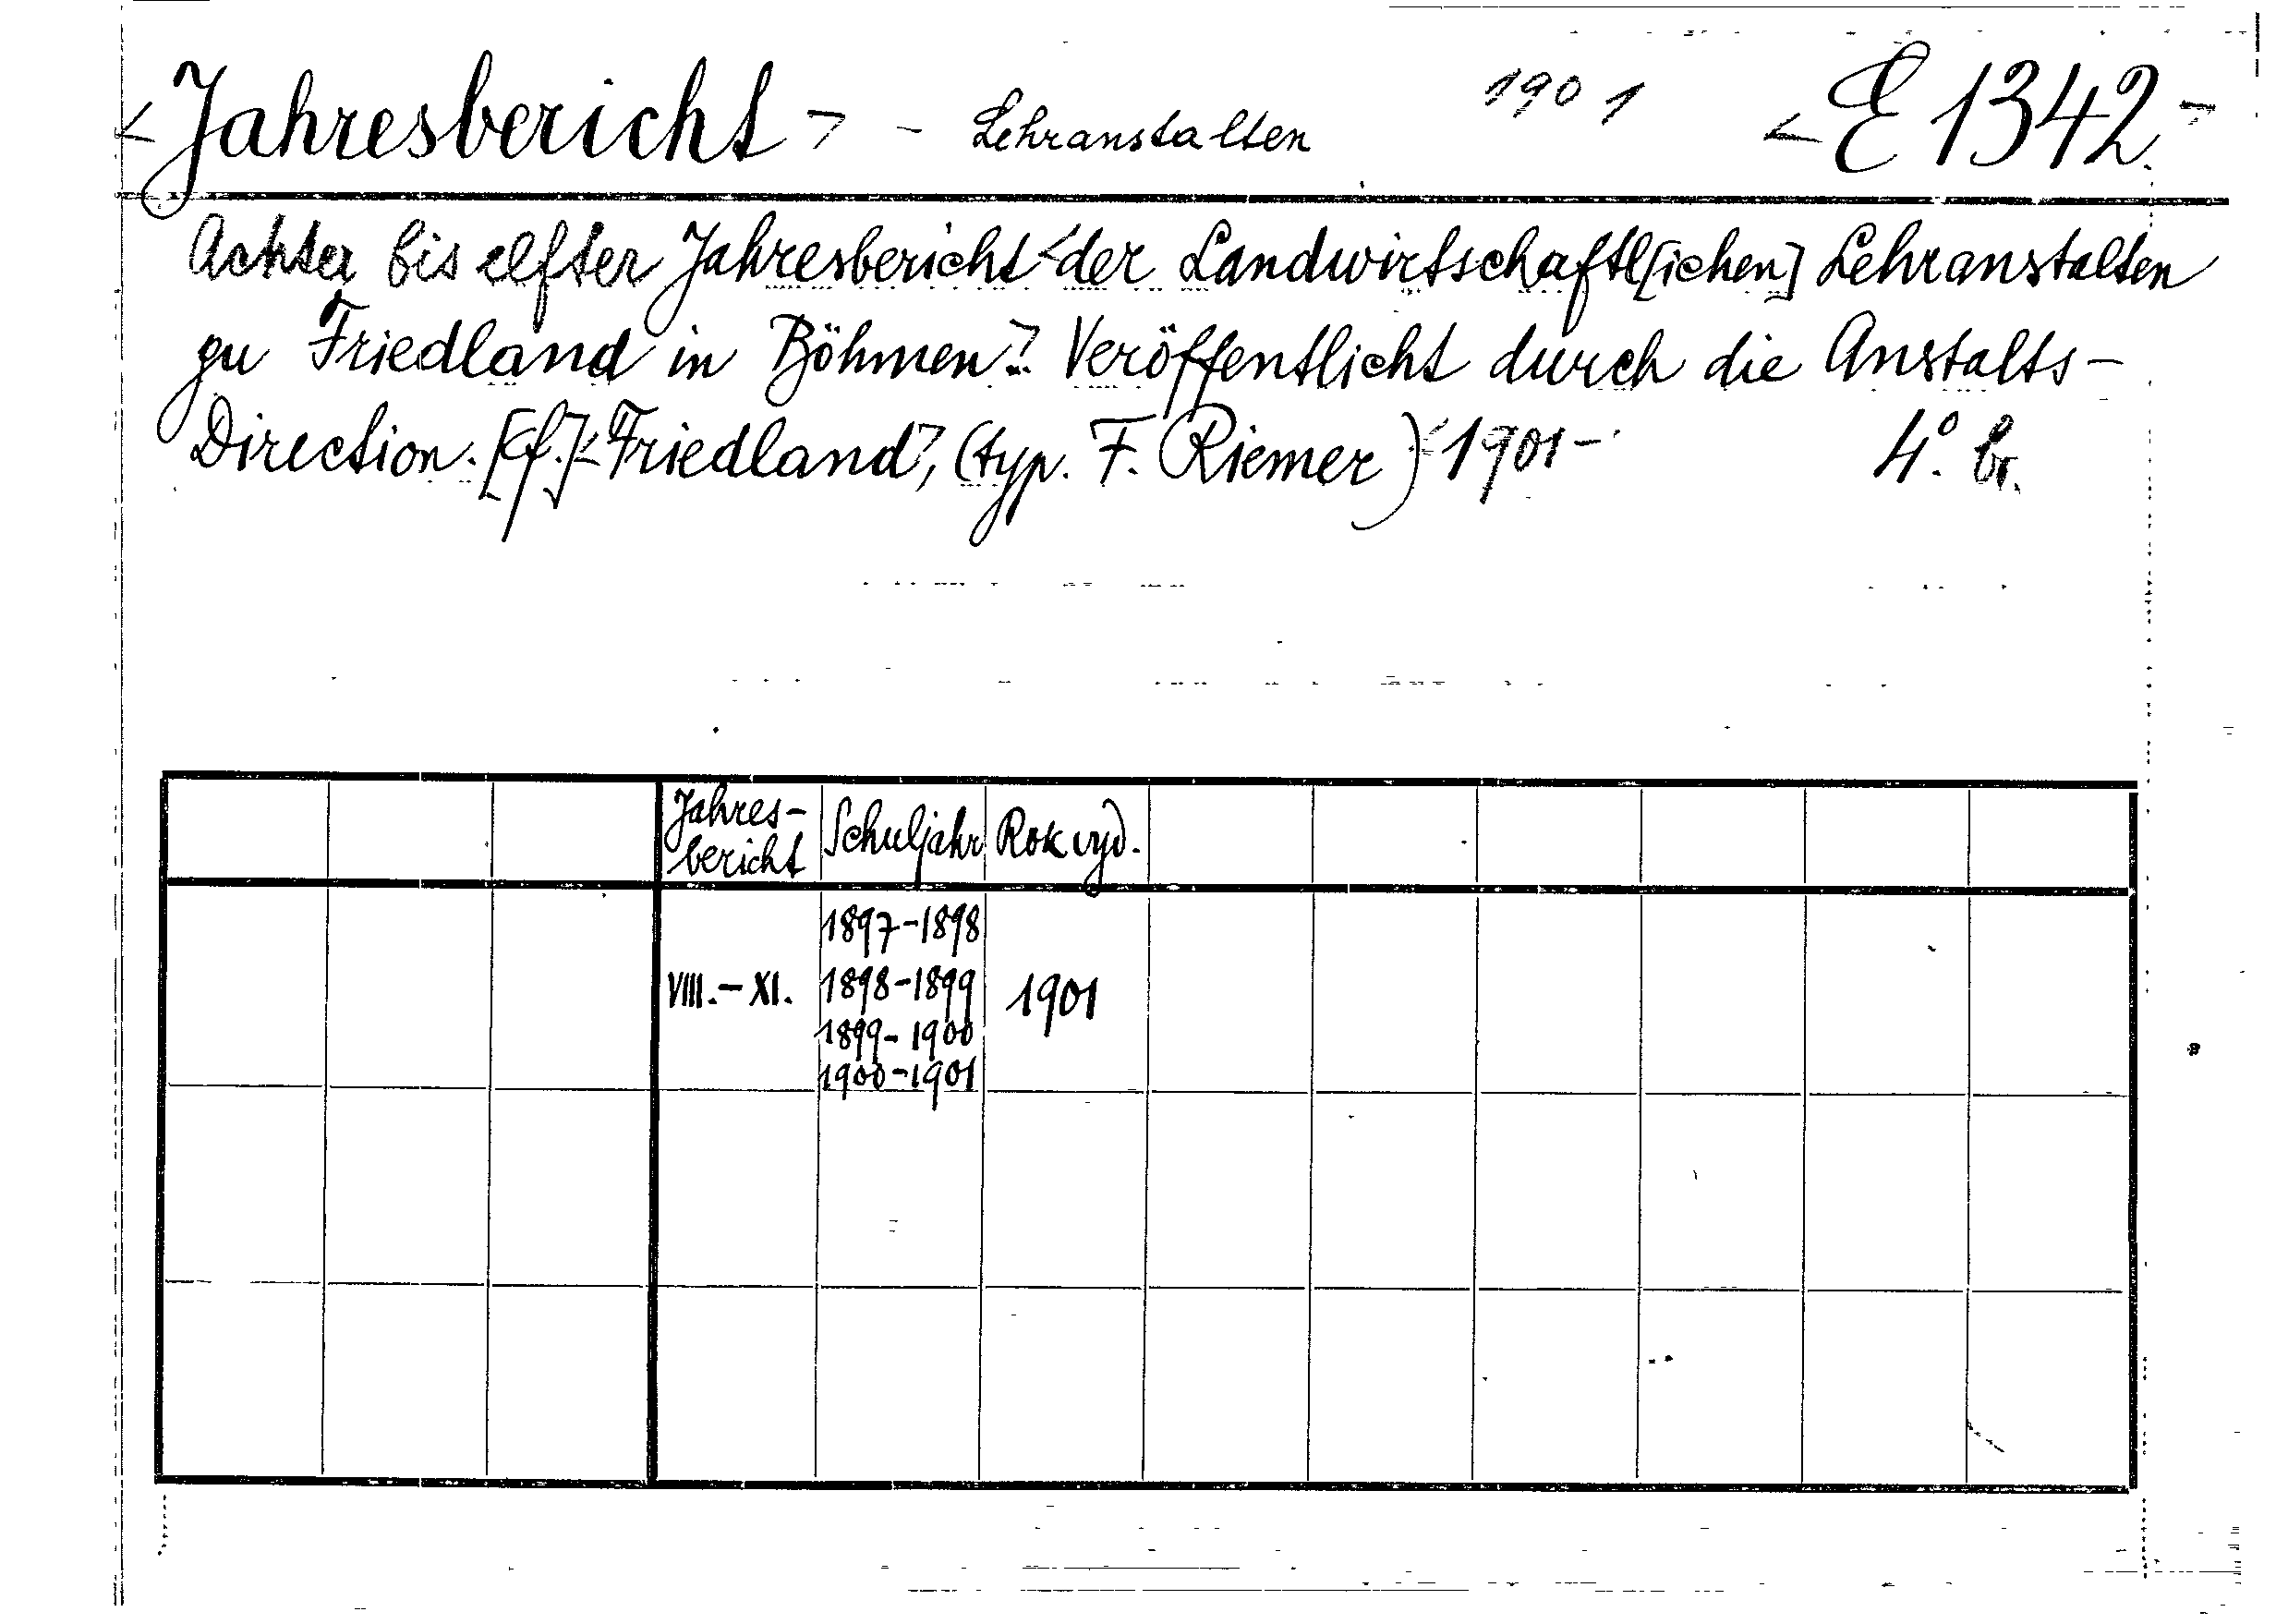 <Jahresbericht> - Lehranstalten 1901 <E 1342>
Achter bis elfter Jahresbericht <der Landwirtschaftl[ichen] Lehranstalten
zu Friedland in Böhmen>. Veröffentlicht durch die Anstalts-
Direction. [Cf.] <Friedland>, (typ. F. Riemer) <1901- 4°. br.
Jahres-
bericht Schuljahr Rok vyd.
1897-1898
VIII.-XI. 1898-1899 1901
1899-1900
1900-1901